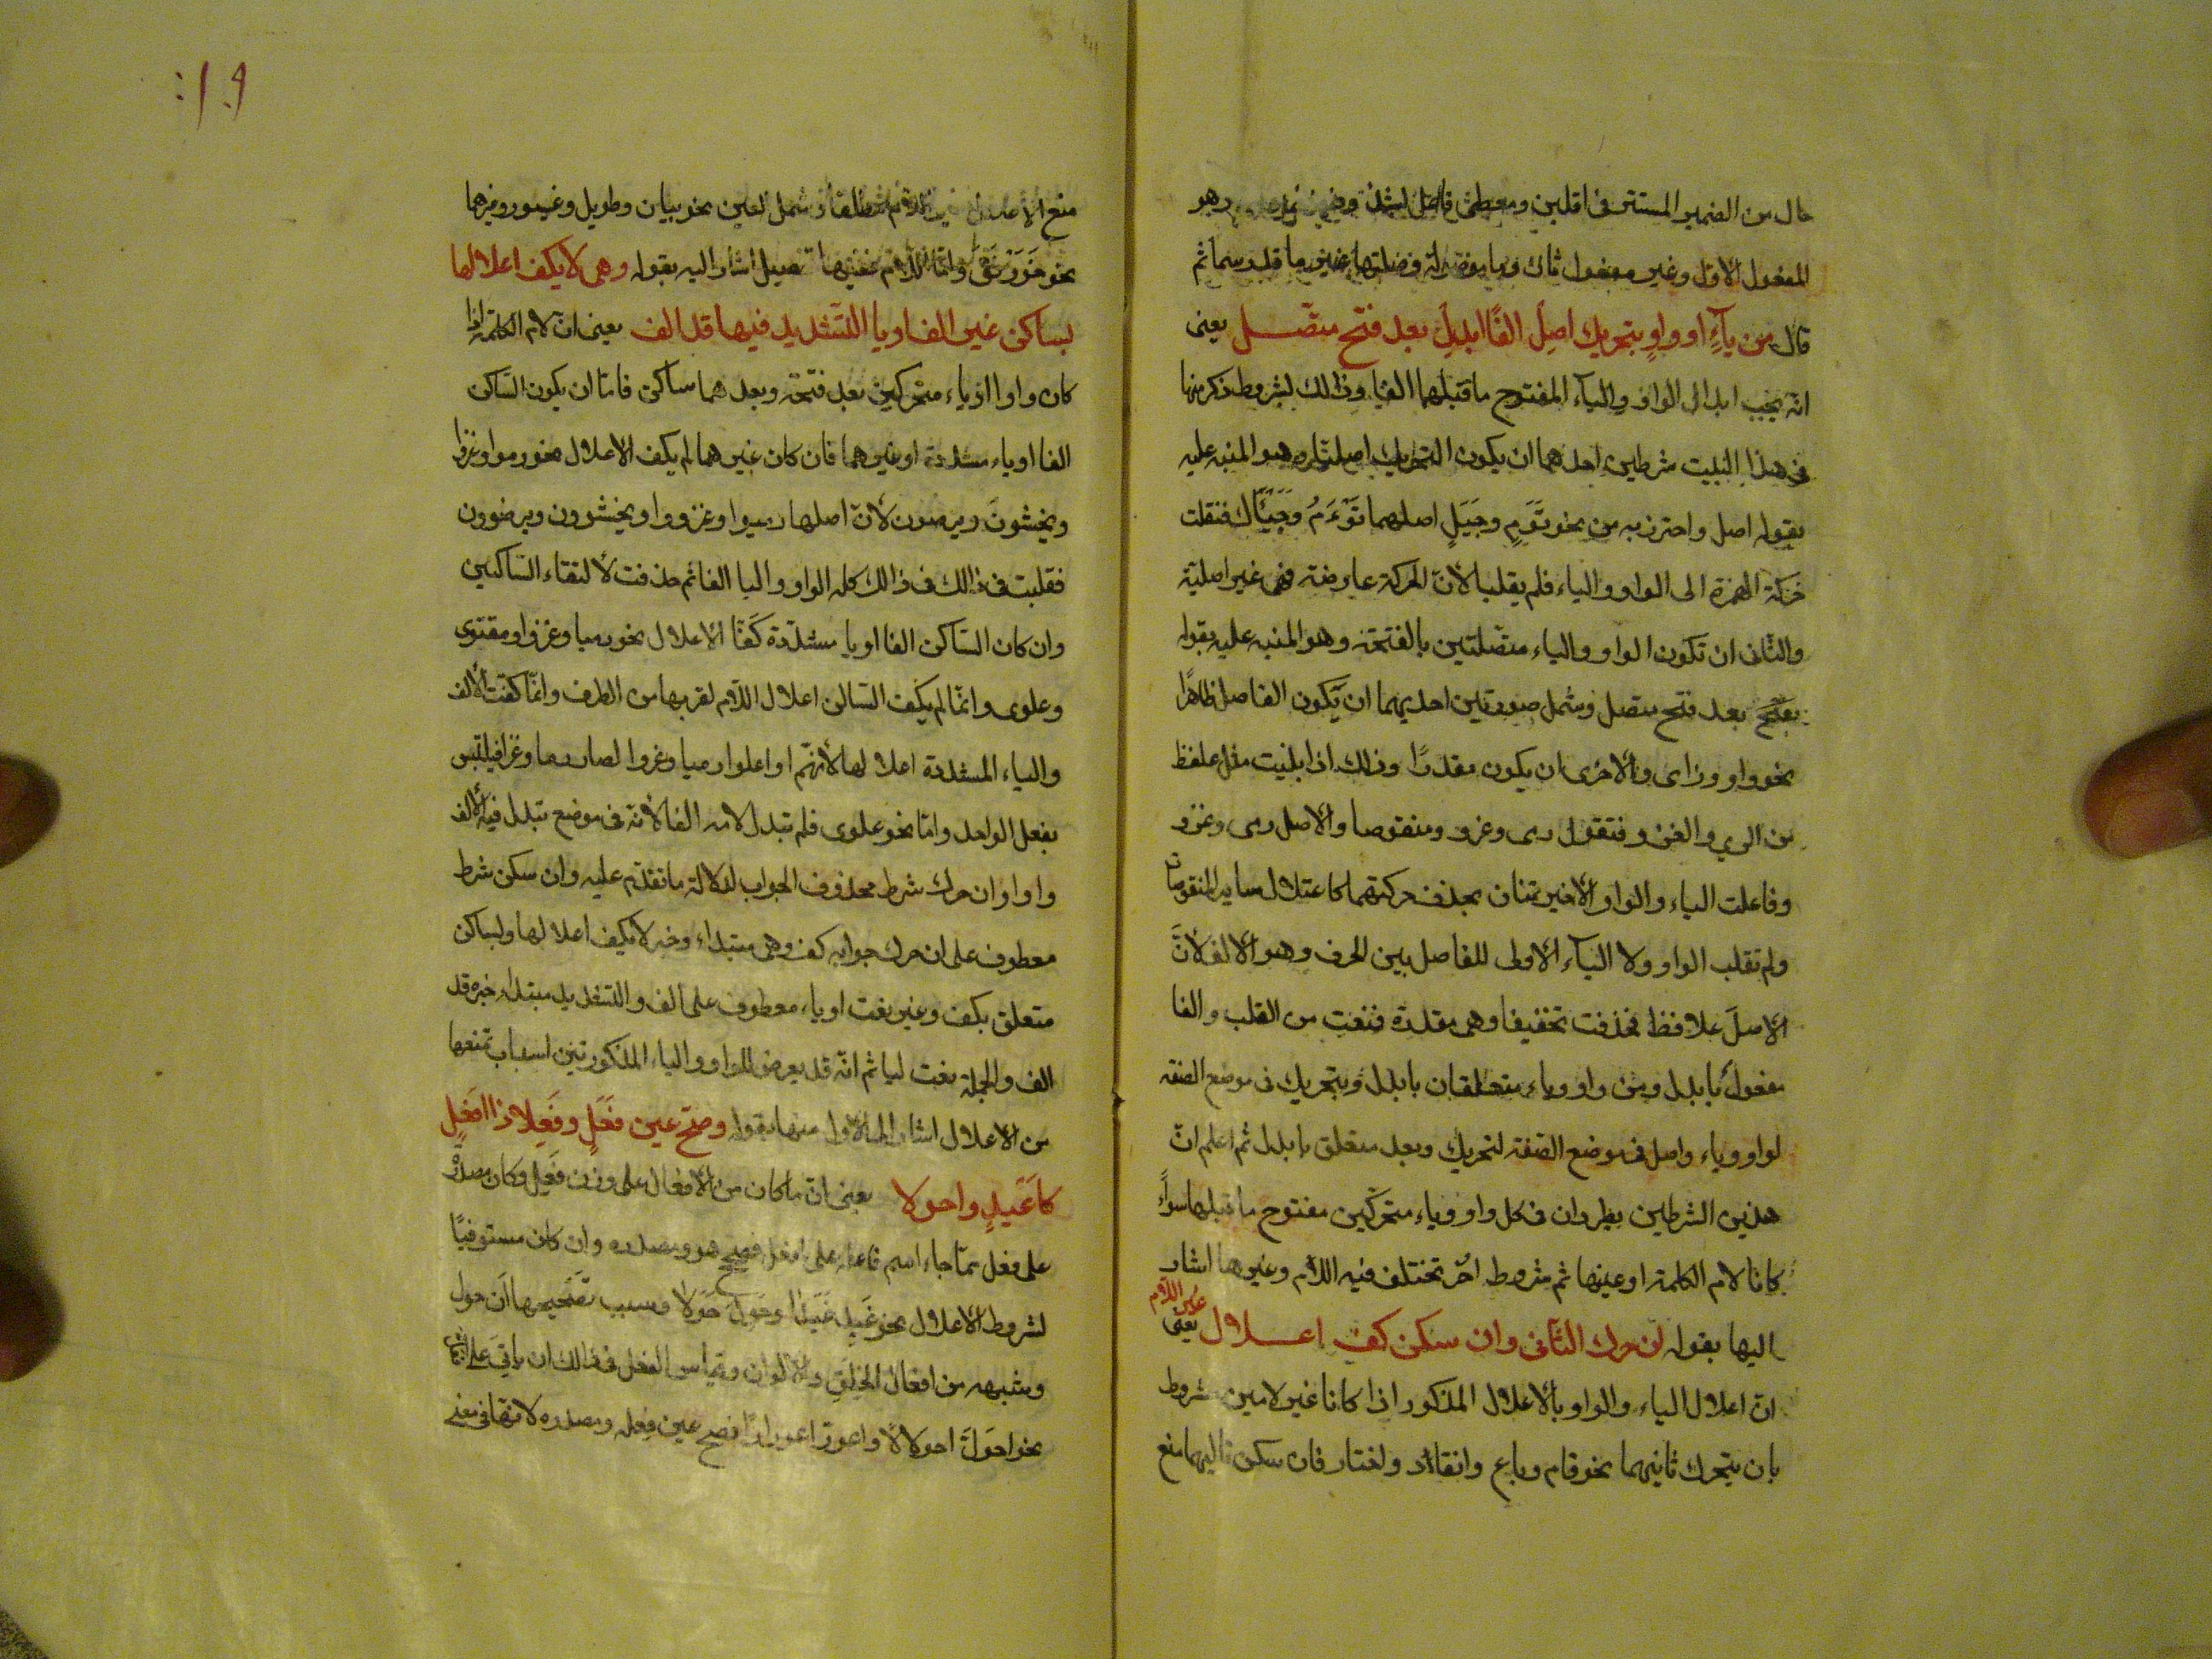 حال من الضمير المستتر فى اقلبن ومعطى فاعل لشذ وغير وهو
المفعول الاول وغير مفعول ثان وما قد رسما ثم
قال من ياءٍ او واوٍ بتحريك اصل الفًا ابدل بعد فتح متصل يعنى
انه يجب ابدال الواو والياء المفتوح ما قبلهما الفا وذالك لشروط ذكر منها
فى هذا البيت شرطين احدهما ان يكون التحريك اصليا وهو المنبه عليه
بقوله اصل واحترز به من نحو تَوَمٍ وجَيَلٍ اصلهما تَوْءَمُ وجَيْئَال فنقلت
حركة الهمزة الى الواو والياء فلم يقلبا لانّ الحركة عارضة فهى غير اصلية
والثانى ان تكون الواو والياء متصلتين بالفتحة وهو المنبه عليه بقوله
بعد فتح متصل وشمل صورتين احديهما ان يكون الفاصل ظاهرًا
نحو واو وزاى والاخرى ان يكون مقدرًا وذلك اذا بنيت مثل علفظ
من الرمي والغزو فتقول رمى وغزو ومنقوصا والاصل رمى وغزو
وفاعلت الياء والواو الاخيرتان بحذف حركتهما كاعتلال ساير المنقوصات
ولم تقلب الواو ولا الياء الاولى للفاصل بين الحرف وهو الالف لانّ
الاصل علافظ فحذفت تخفيفا وهى مقدرة فنعت من القلب والفا
مفعول بابدل ومن واو وياء متعلقان بابدل وبتحريك فى موضع الصفة
لواو وياء واصل فى موضع الصفة لتحريك وبعد متعلق بابدل ثم اعلم انّ
هذين الشرطين يطردان فى كل واو وياء متحركين مفتوح ما قبلها سواءً
كانا لام الكلمة او عينها ثم شروط اخر تختلف فيه اللام وغيرها اشار
اليها بقوله ان حرك الثانى وان سكن كف اعـلال غير اللام يعنى
انّ اعلال الياء والواو بالاعلال المذكور اذا كانا غير لامين مشروط
بان يتحرك ثانيهما نحو قام وباع وانقاد واختار فان سكن ثانيهما منع
١٠٩:
منع الاعلال وشمل العين نحو بيان وطويل وغيور وغيرهما
نحو خَوَرْنَق وامّا اللام ففيها تفصيل اشار اليه بقوله وهى لا يكف اعلالها
بساكن غير الف او يا التشديد فيها قد الف يعنى انّ لام الكلمة اذا
كان واوا او ياء متحركين بعد فتحة وبعدهما ساكن فامّا ان يكون الساكن
الفا او ياء مشددة او غيرهما فان كان غيرهما لم يكف الاعلال نحو رموا وغزوا
ويخشونَ ويرضون لانّ اصلها رميوا وغزووا ويخشوون ويرضوون
فقلبت فى ذالك فى ذالك كله الواو واليا الفا ثم حذفت لالتقاء الساكنين
وان كان السّاكن الفا او يا مشدّدة كفّا الاعلال نحو رميا وغزوا ومقتوى
وعلوى وانّما لم يكف الساكن اعلال اللام لقربها من الطرف وانّما كفّت الالف
والياء المشددة اعلالها لانّهم لو اعلوا رميا وغزوا لصار رما وغزا فيلتبس
بفعل الواحد وامّا نحو علوى فلم تبدل لامه الفا لانه فى موضع تبدل فيه الالف
واوا وان حرك شرط محذوف الجواب لدلالة ما تقدّم عليه وان سكن شرط
معطوف على ان حرك جوابه كف وهى مبتداء وخبره لا يكف اعلالها وبساكن
متعلق بكف وغير نعت او ياء معطوف على الف والتشديد مبتداء خبره قد
الف والجملة نعت ليا ثم انّه قد يعرض للواو والياء المذكورتين اسباب تمنعها
من الاعلال اشار الى الاول منها بقوله وصحّ عين فَعَلٍ وفَعِلا ذا افعَلٍ
كاغيدٍ واحولا يعنى انّ ما كان من الافعال على وزن فَعِلَ وكان مصدره
على فعل ممّا جاء اسم فاعله على افعل فصح هو ومصدره وان كان مستوفيًا
لشروط الاعلال نحو غَيِدَ غَيَدًا وحَوِلَ حَوَلا وسبب تصحيحها انّ حول
وشبهه من افعال الخلق والالوان وقياس الفعل فى ذالك ان ياتى على
نحو احوَلّ احولالا واعورّ اعورارًا فصح عين فعله ومصدره لانها فى معنى